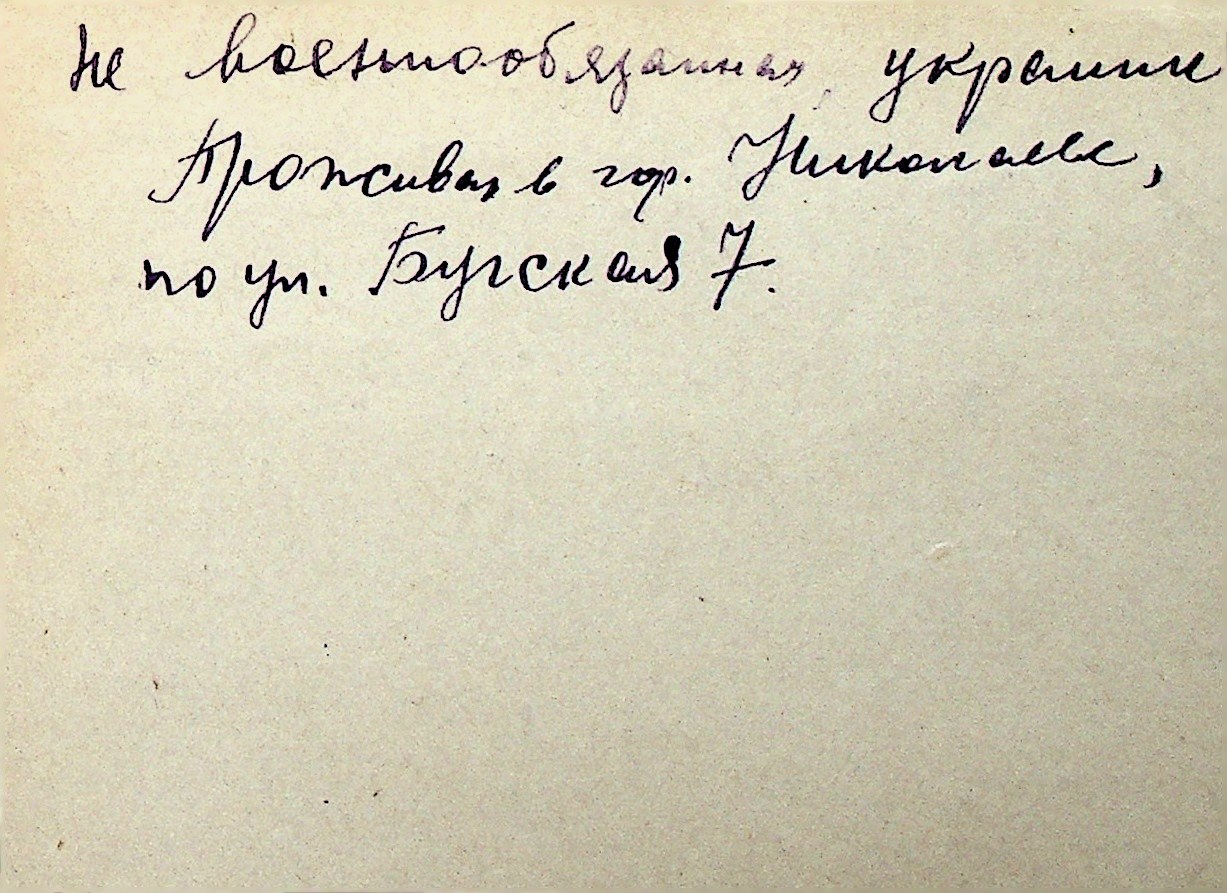 Не военнообязанная, украинк
Проживал в гор. Николаеве,
по ул. Бугская 7.